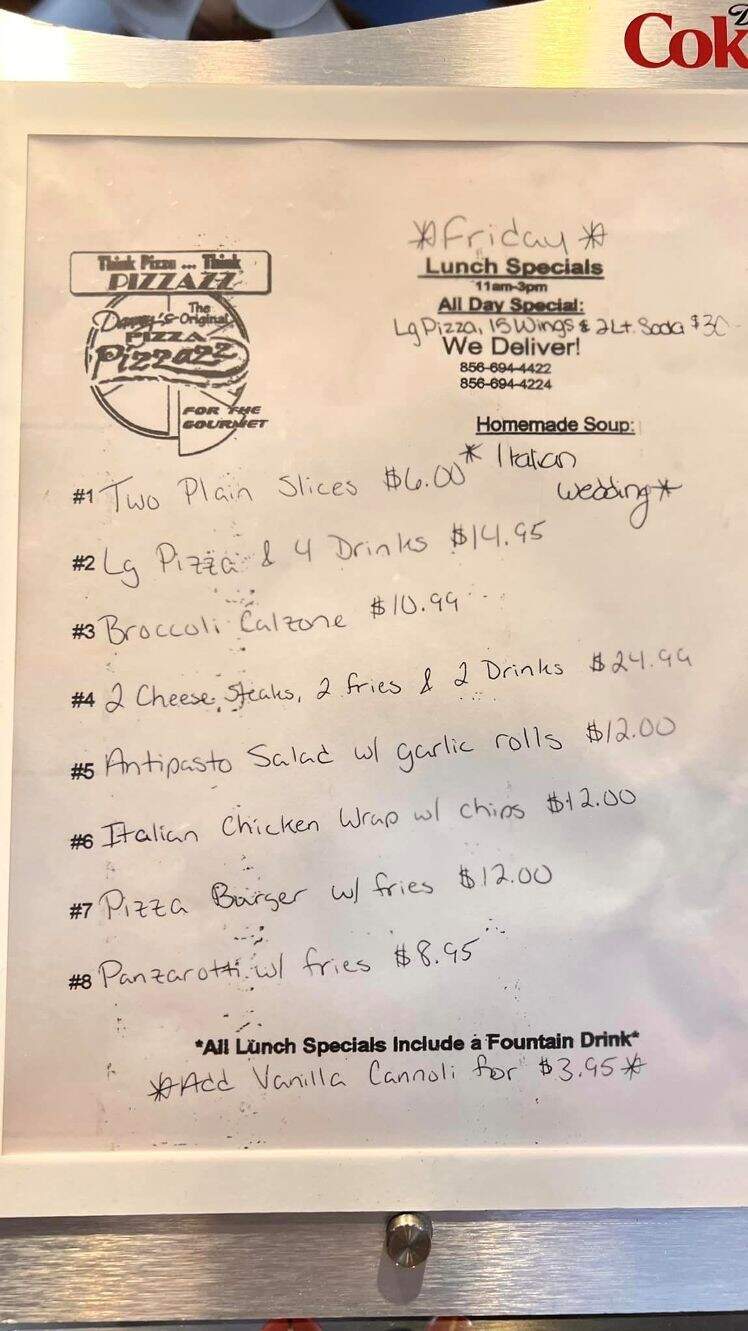 Cok
Think Pizza ... Think
PIZZAZZ
The
Danny's Original
PIZZA
Pizzazz
FOR THE
GOURMET
*Friday*
Lunch Specials
11am-3pm
All Day Special:
Lg Pizza, 15 Wings & 2Lt. Soda $30
We Deliver!
856-694-4422
856-694-4224
Homemade Soup:
* Italian
wedding*
#1 Two Plain Slices $6.00
#2 Lg Pizza & 4 Drinks $14.95
#3 Broccoli Calzone $10.99
#4 2 Cheese Steaks, 2 fries & 2 Drinks $24.99
#5 Antipasto Salad w/ garlic rolls $12.00
#6 Italian Chicken Wrap w/ chips $12.00
#7 Pizza Burger w/ fries $12.00
#8 Panzarotti w/ fries $8.95
*All Lunch Specials Include a Fountain Drink*
*Add Vanilla Cannoli for $3.95*